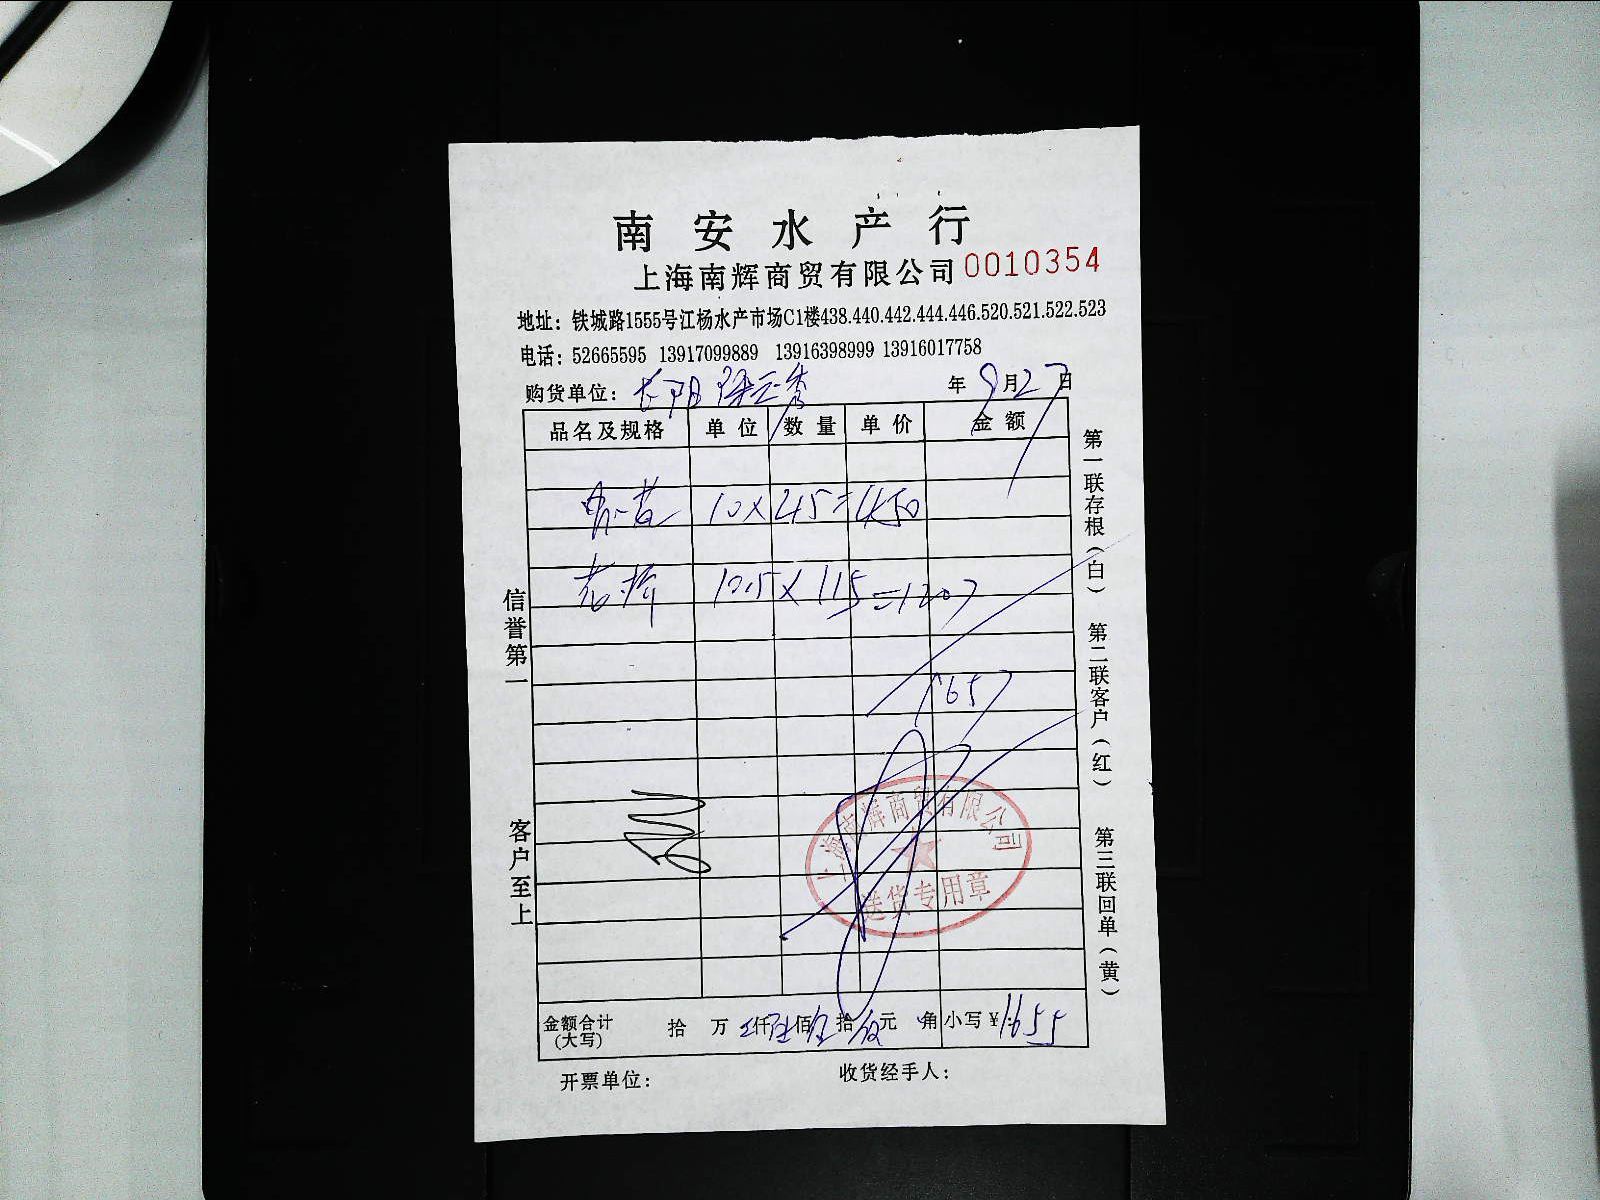 南安水产行
上海南辉商贸有限公司 0010354
地址：铁城路1555号江杨水产市场C1楼438.440.442.444.446.520.521.522.523
电话：52665595 13917099889 13916398999 13916017758
购货单位：长阳 年 9月27日
品名及规格 单位 数量 单价 金额
10×45=450
10.5×115=1207
1657
上海南辉商贸有限公司
送货专用章
金额合计(大写) 拾 万 仟 佰 拾 元 角 小写¥:1655
开票单位： 收货经手人：
信誉第一
客户至上
第一联存根(白)
第二联客户(红)
第三联回单(黄)